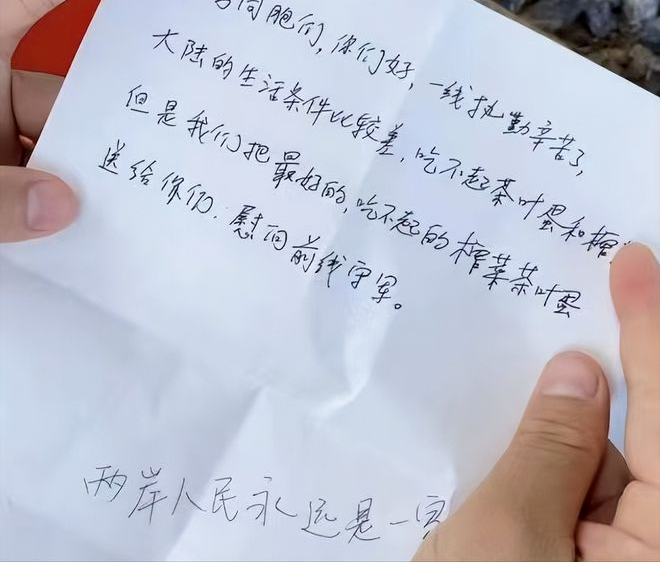 同胞们，你们好，一线执勤辛苦了，
大陆的生活条件比较差，吃不起茶叶蛋和榨
但是我们把最好的，吃不起的榨菜茶叶蛋
送给你们，慰问前线守军。
两岸人民永远是一家